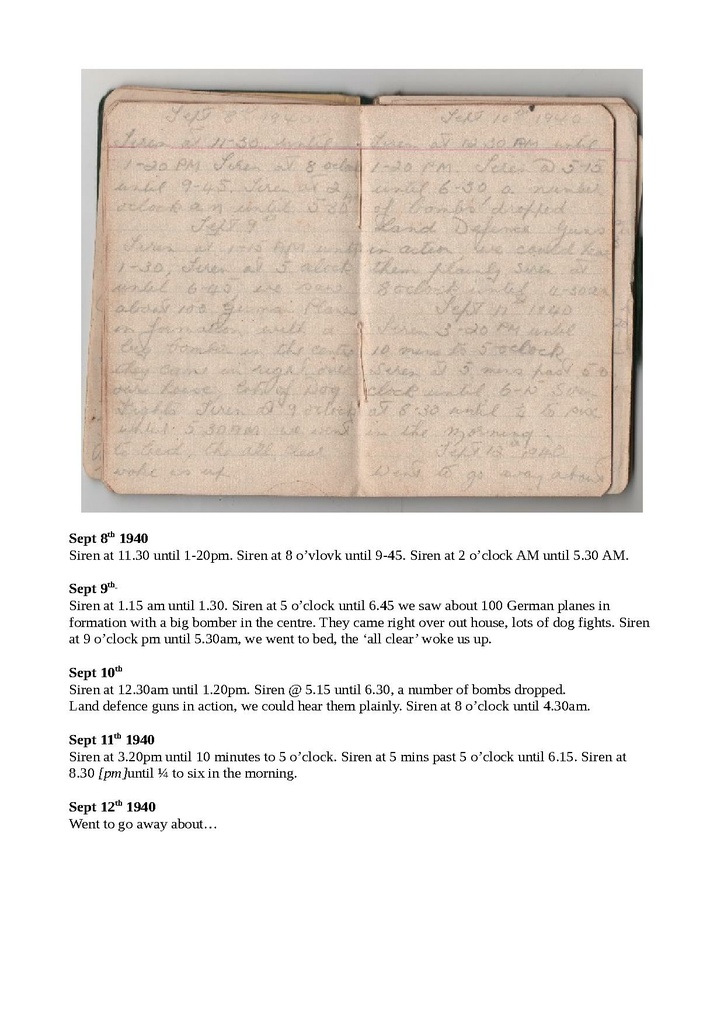 Sept 8th 1940
Siren at 11-30 until
1-20 PM Siren at 8 oclock
until 9-45. Siren at 2
oclock am until 5 30
Sept 9th
Siren at 1-15 AM until
1-30, Siren at 5 oclock
until 6-45 we saw
about 100 German Planes
in formation with a
big bomber in the centre
they came in right over
our house lots of Dog
fights Siren at 9 oclock
until 5 30am we went
to bed, the all clear
woke us up
Sept 10th 1940
Siren at 12 30 AM until
1-20 PM. Siren @ 5-15
until 6-30 a number
of bombs dropped
Land Defence Guns
in action we could hear
them plainly Siren at
8 oclock until 4-30am
Sept 11th 1940
Siren 3-20 PM until
10 mins to 5 oclock
Siren at 5 mins past 5 o
clock until 6-15 Siren
at 8-30 until ¼ to six
in the morning.
Sept 13th 1940
Went to go away about
Sept 8th 1940
Siren at 11.30 until 1-20pm. Siren at 8 o’vlovk until 9-45. Siren at 2 o’clock AM until 5.30 AM.
Sept 9th.
Siren at 1.15 am until 1.30. Siren at 5 o’clock until 6.45 we saw about 100 German planes in
formation with a big bomber in the centre. They came right over out house, lots of dog fights. Siren
at 9 o’clock pm until 5.30am, we went to bed, the ‘all clear’ woke us up.
Sept 10th
Siren at 12.30am until 1.20pm. Siren @ 5.15 until 6.30, a number of bombs dropped.
Land defence guns in action, we could hear them plainly. Siren at 8 o’clock until 4.30am.
Sept 11th 1940
Siren at 3.20pm until 10 minutes to 5 o’clock. Siren at 5 mins past 5 o’clock until 6.15. Siren at
8.30 [pm]until ¼ to six in the morning.
Sept 12th 1940
Went to go away about…